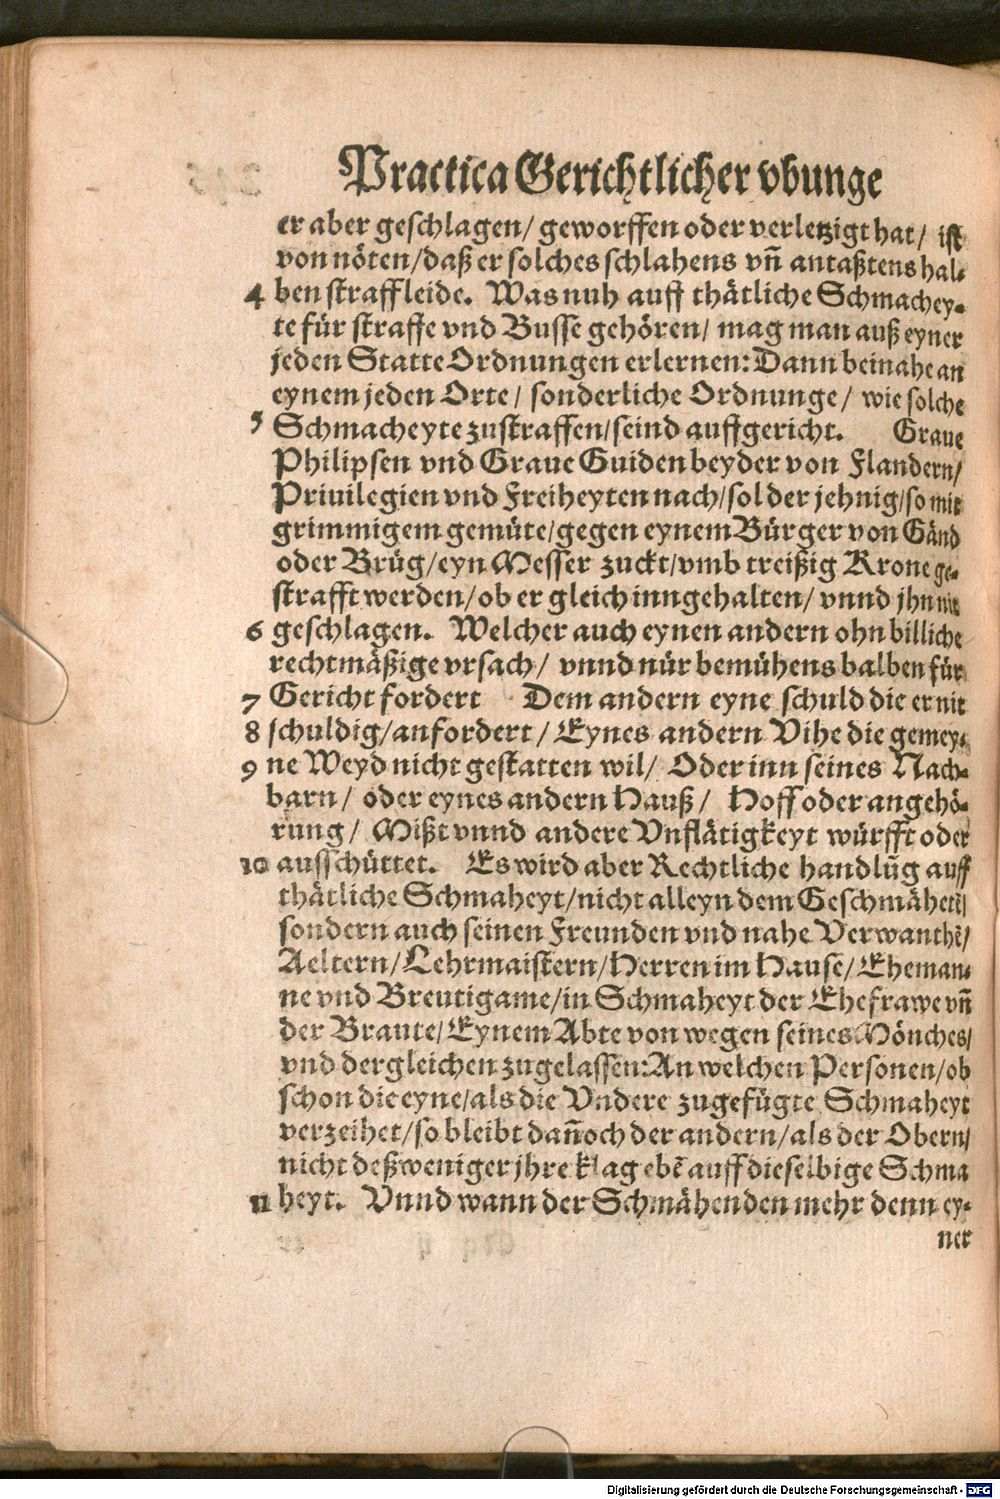 Practica Gerichtlicher vbunge
er aber geschlagen/ geworffen oder verletzigt hat/ ist
von nöten/daß er solches schlahens vn̄ antaßtens hal⸗
4 ben straff leide. Was nuh auff thätliche Schmachey⸗
te für straffe vnd Busse gehören/ mag man auß eyner
jeden Statte Ordnungen erlernen: Dann beinahe an
eynem jeden Orte/ sonderliche Ordnunge/ wie solche
5 Schmacheyte zustraffen/seind auffgericht. Graue
Philipsen vnd Graue Guiden beyder von Flandern/
Priuilegien vnd Freiheyten nach/sol der jehnig/so mit
grimmigem gemüte/gegen eynem Bürger von Gänd
oder Brüg/eyn Messer zuckt/vmb treißig Krone ge⸗
strafft werden/ob er gleich inngehalten/ vnnd jhn nit
6 geschlagen. Welcher auch eynen andern ohn billiche
rechtmäßige vrsach/ vnnd nür bemühens balben für
7 Gericht fordert Dem andern eyne schuld die er nit
8 schuldig/anfordert/ Eynes andern Vihe die gemey⸗
9 ne Weyd nicht gestatten wil/ Oder inn seines Nach⸗
barn/ oder eynes andern Hauß/ Hoff oder angehö⸗
rung/ Mißt vnnd andere Vnflätigkeyt würfft oder
10 ausschüttet. Es wird aber Rechtliche handlūg auff
thätliche Schmaheyt/nicht alleyn dem Geschmähetē/
sondern auch seinen Freunden vnd nahe Verwanthē/
Aeltern/Lehrmaistern/Herren im Hause/Eheman⸗
ne vnd Breutigame/in Schmaheyt der Ehefrawe vn̄
der Braute/Eynem Abte von wegen seines Mönches/
vnd dergleichen zugelassen: An welchen Personen/ob
schon die eyne/als die Vndere zugefügte Schmaheyt
verzeihet/so bleibt dan̄och der andern/als der Obern/
nicht deßweniger jhre klag ebē auff dieselbige Schma
11 heyt. Vnnd wann der Schmähenden mehr denn ey⸗
ner
Digitalisierung gefördert durch die Deutsche Forschungsgemeinschaft - DFG